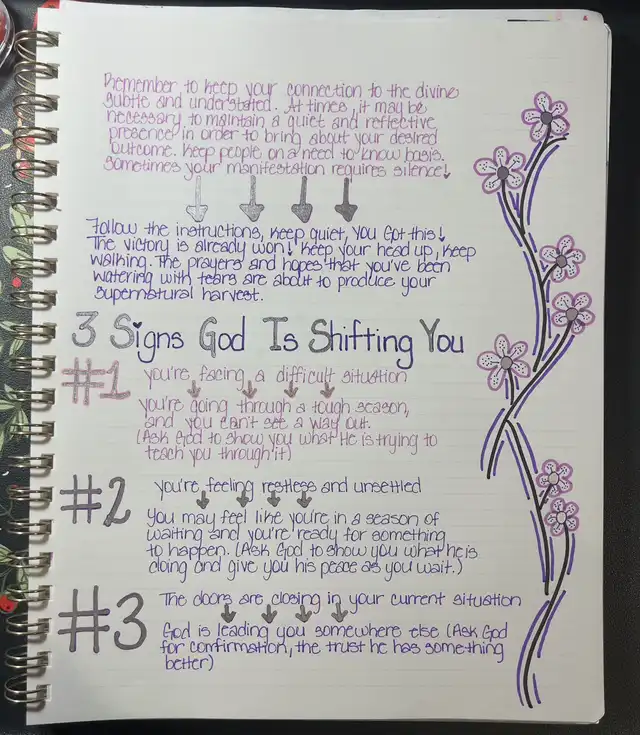 Remember to keep your connection to the divine
subtle and understated. At times, it may be
necessary to maintain a quiet and reflective
presence in order to bring about your desired
outcome. Keep people on a need to know basis.
Sometimes your manifestation requires silence!
Follow the instructions, keep quiet, you got this!
The victory is already won! keep your head up, keep
walking. The prayers and hopes that you've been
watering with tears are about to produce your
supernatural harvest.
3 Signs God Is Shifting You
#1 you're facing a difficult situation
you're going through a tough season,
and you can't see a way out.
(Ask God to show you what He is trying to
teach you through it)
#2 you're feeling restless and unsettled
You may feel like you're in a season of
waiting and you're ready for something
to happen. (Ask God to show you what he is
doing and give you his peace as you wait.)
#3 The doors are closing in your current situation
God is leading you somewhere else (Ask God
for confirmation, the trust he has something
better)